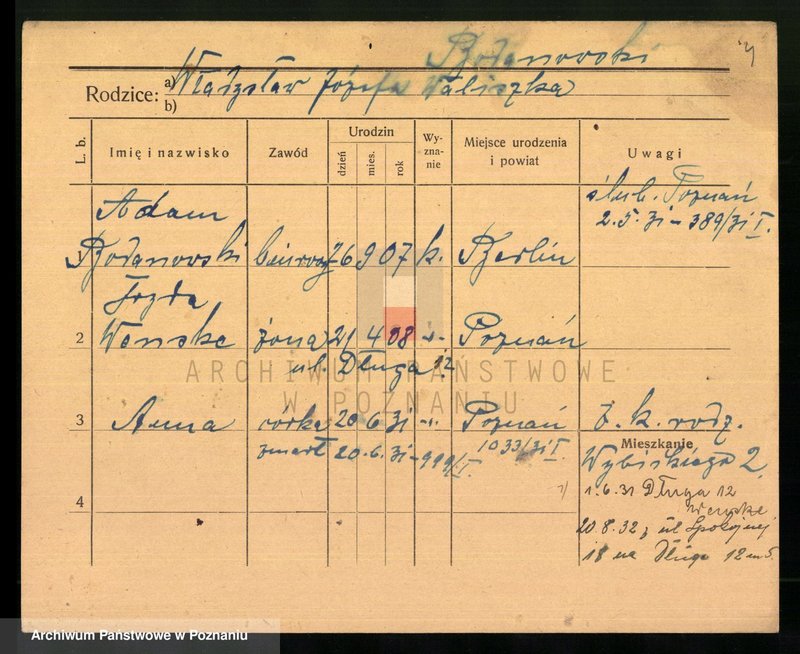 Bogdanowski
Rodzice: a) Władysław Józefa Waliszka
b)
L. b.
Imię i nazwisko
Zawód
Urodzin
dzień
mies.
rok
Wy-
zna-
nie
Miejsce urodzenia
i powiat
Uwagi
ślub. Poznań
2.5.31 – 389/31 I.
Adam
1 Bogdanowski 26 9 07 k. Berlin
2 Wenske żona 21 4 08 " Poznań
ul. Długa 12
3 Anna córka 20 6 31 " Poznań
zmarł 20.6.31 – 999/I. 1033/31 I.
Mieszkanie
Wybickiego 2
1.6.31 Długa 12
Wenske
20.8.32 z ul Spokojnej
18 na Długa 12 m 5
4
ARCHIWUM PAŃSTWOWE
W POZNANIU
Archiwum Państwowe w Poznaniu